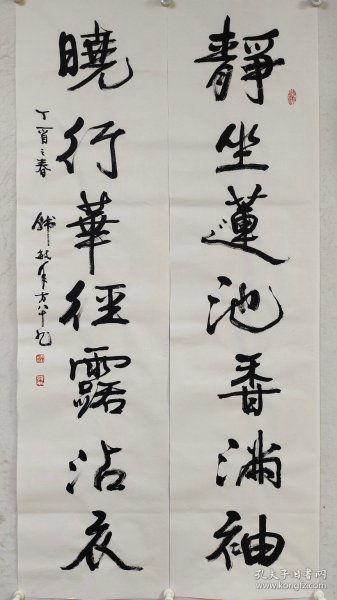 靜坐蓮池香滿袖
曉行華徑露沾衣
丁酉之春
孔夫子旧书网